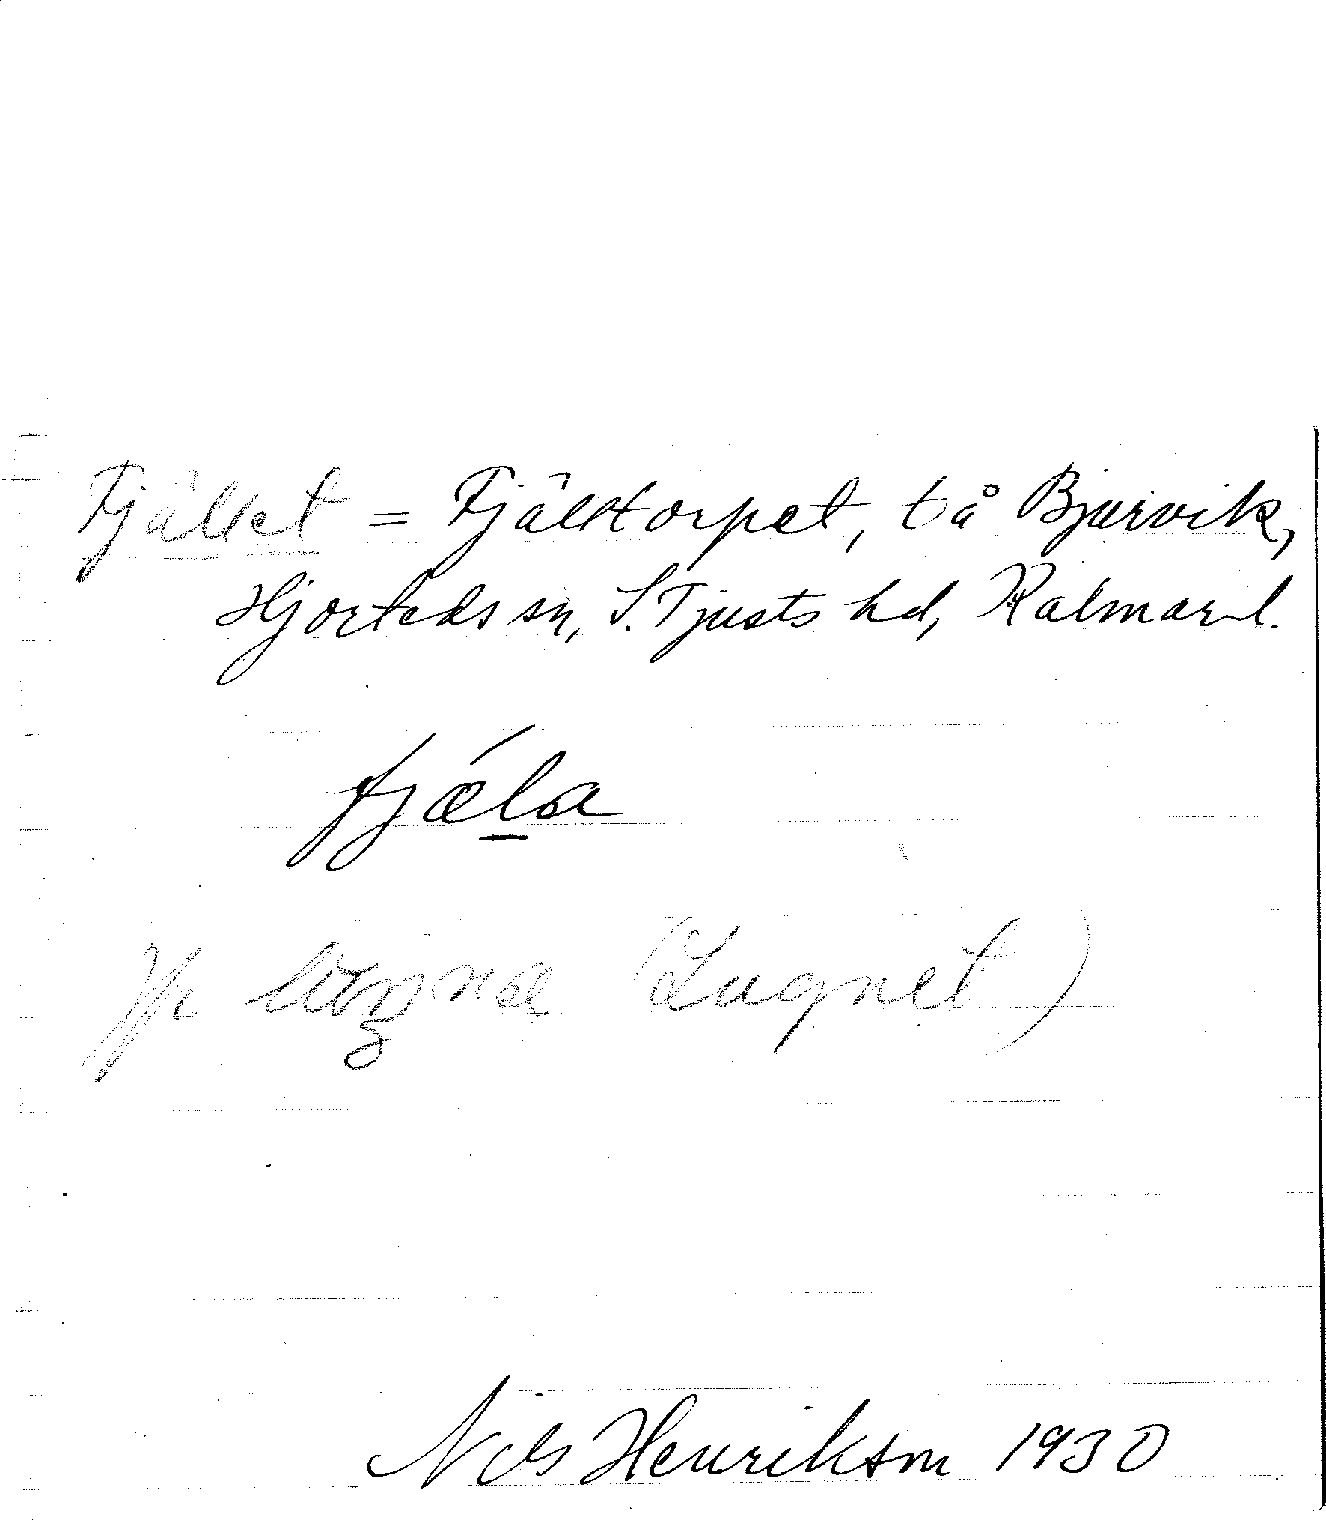 Fjället = Fjälltorpet, t å Bjurvik,
Hjorteds sn, S. Tjusts hd, Kalmar l.
fjæ´la
(Lugnet)
Nils Henrikson 1930